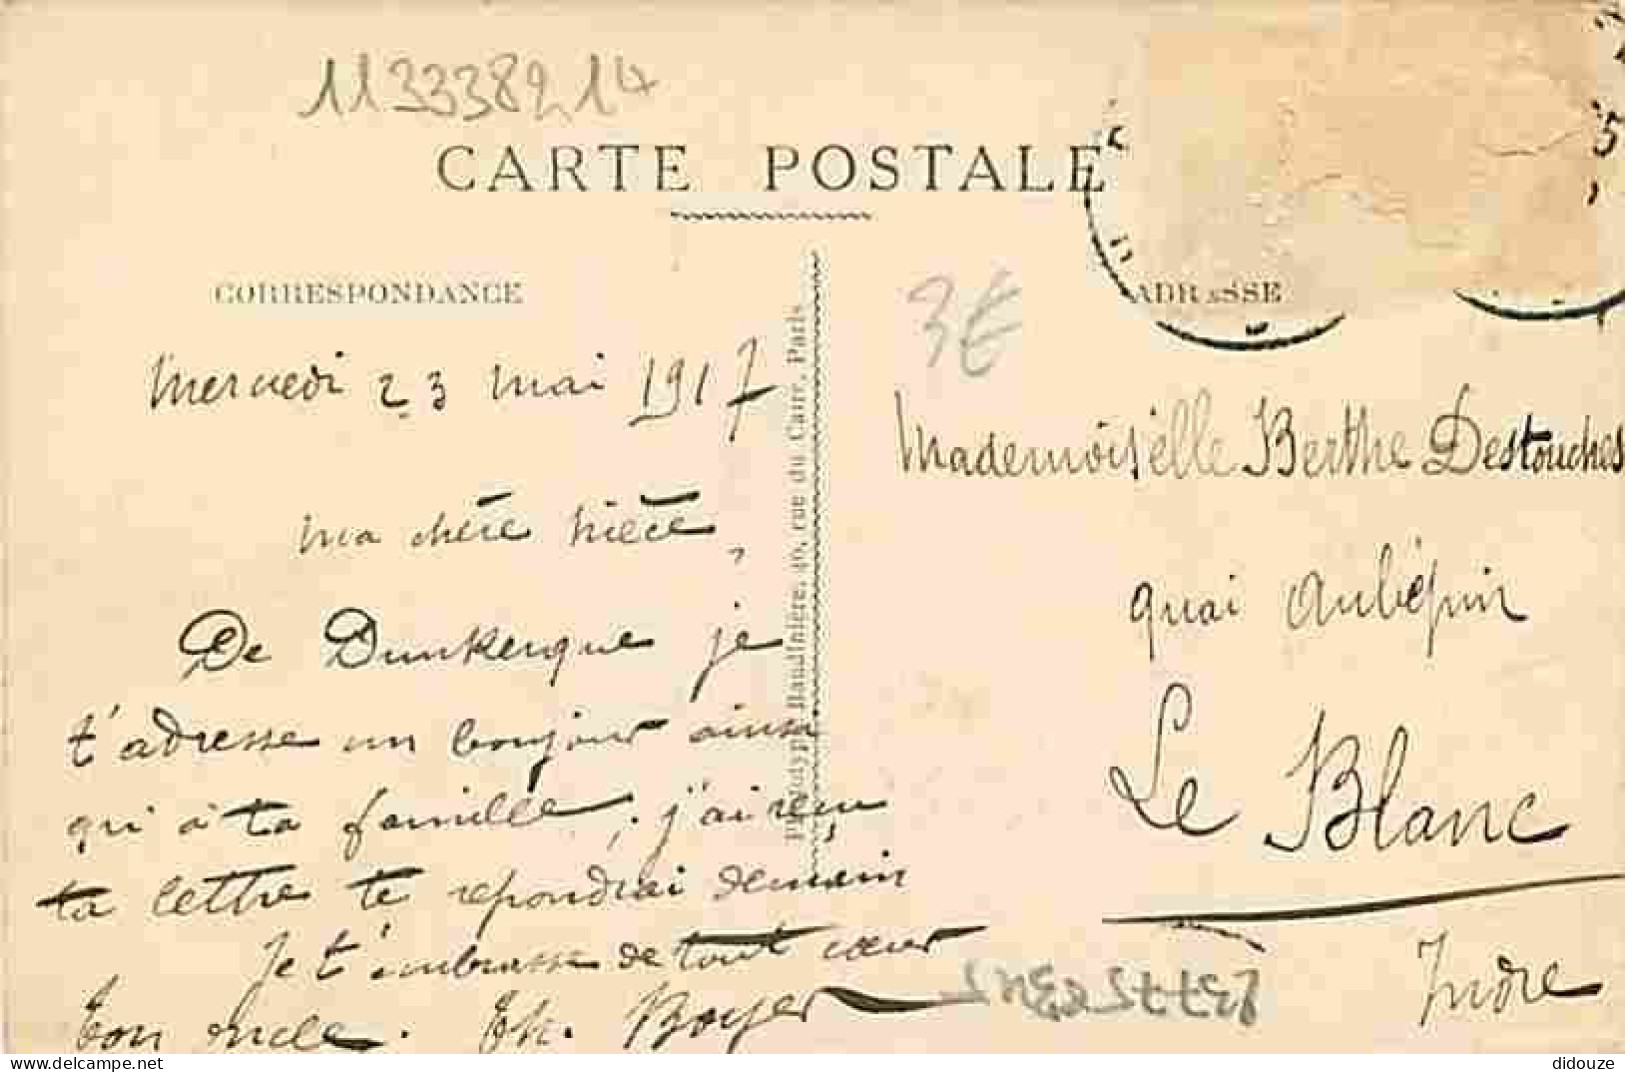 113338214
CARTE POSTALE
CORRESPONDANCE
ADRESSE
3€
Mercredi 23 mai 1917
ma chère nièce,
De Dunkerque je
t'adresse un bonjour ainsi
qui à ta famille, j'ai reçu
ta lettre te repondrai demain
Je t'embrasse de tout cœur
Ton oncle. Th. Boyer
40, rue du Caire, Paris
Mademoiselle Berthe Destouches
quai Aubépin
Le Blanc
Indre
delcampe.net
didouze